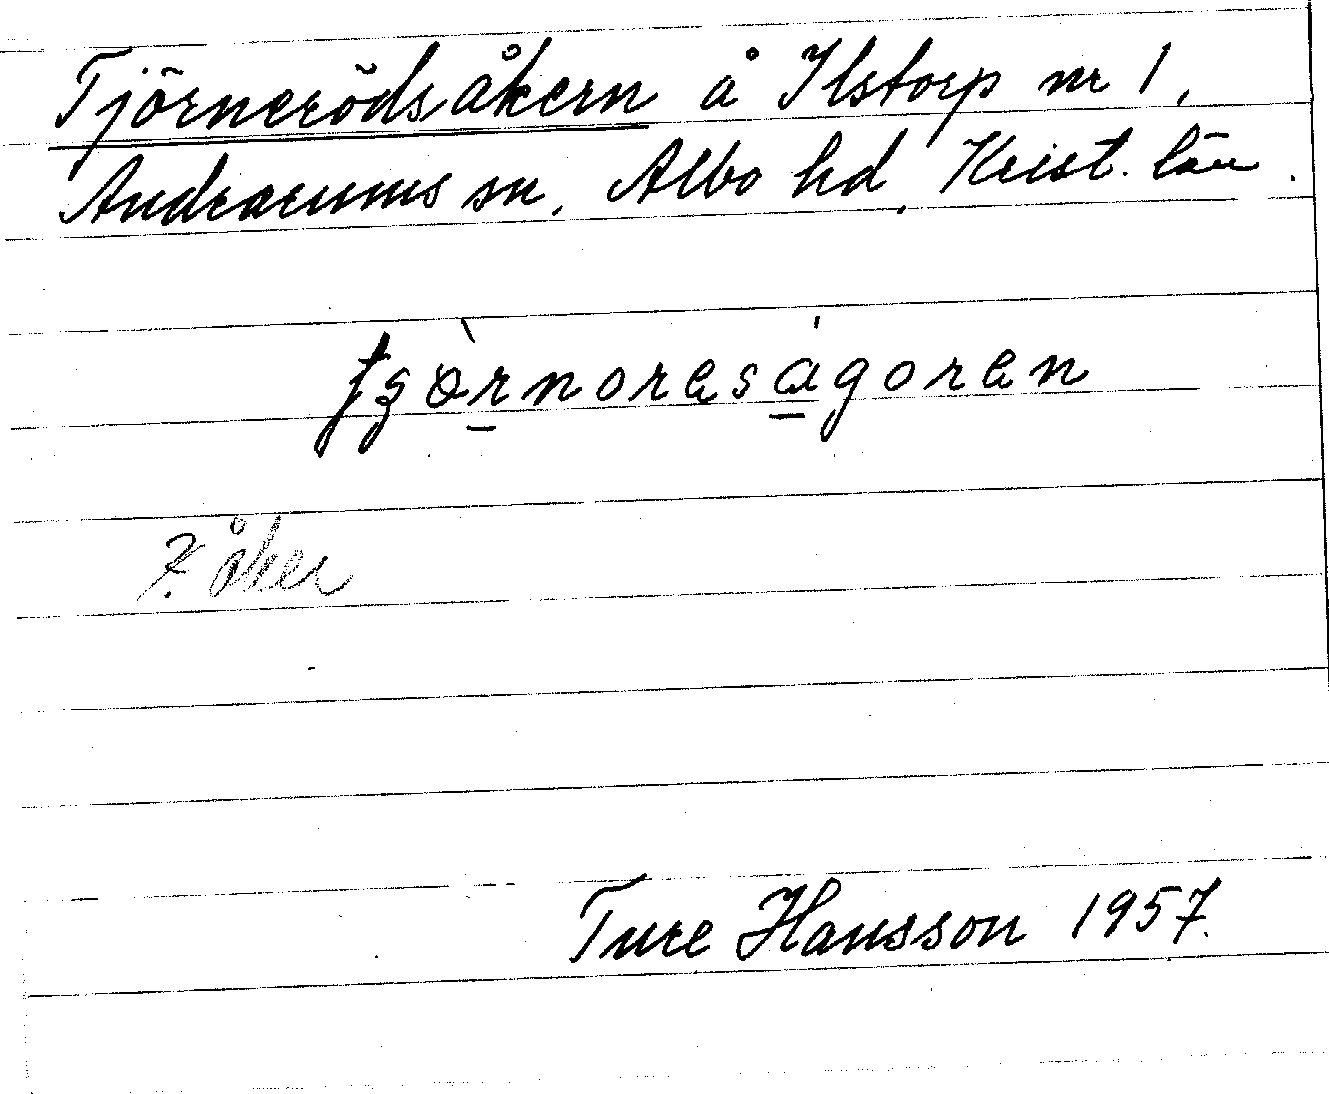 Tjörnerödsåkern å Ilstorp nr 1,
Andrarums sn, Albo hd, Krist. län.
tʒòrnoreságoren
X. åker
Ture Hansson 1957.